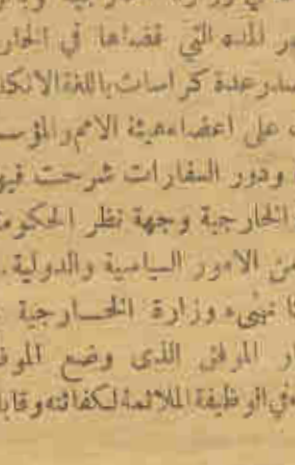 ر المدة التي قضاها في الخار
صدر عدة كراسات باللغة الانكل
على اعضاء هيئة الامم والمؤسس
ودور السفارات شرحت فيه
الخارجية وجهة نظر الحكوم
من الامور السياسية والدولية.
نهيء وزارة الخارجية
ار المرفق الذى وضع الموظ
في الوظيفة الملائمة لكفائته وقابل